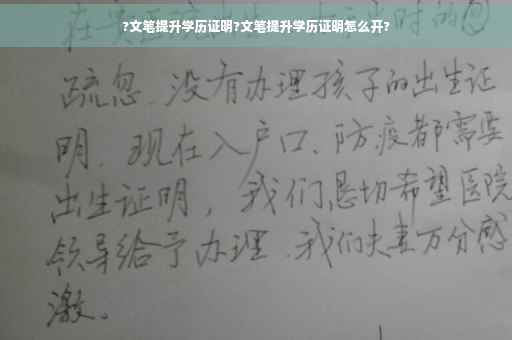 ?文笔提升学历证明?文笔提升学历证明怎么开?
疏忽、没有办理孩子的出生证
明、现在入户口、防疫都需要
出生证明，我们恳切希望医院
领导给予办理、我们夫妻万分感
激。